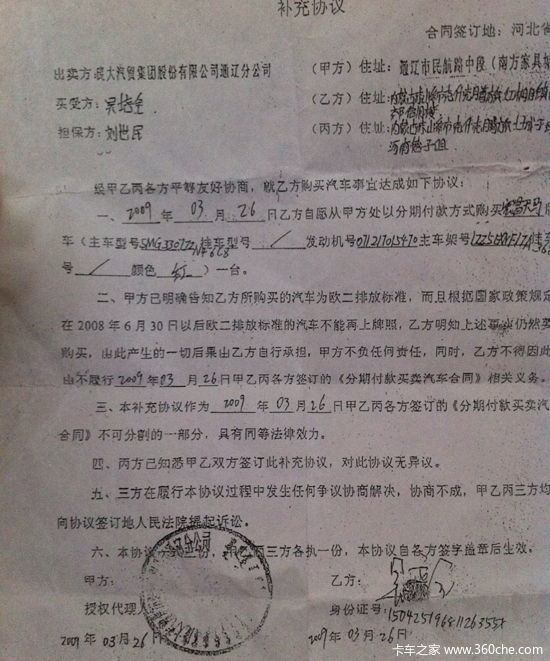 补充协议
合同签订地：河北省
出卖方：庞大汽贸集团股份有限公司通辽分公司
（甲方）住址：通辽市民航路中段（南方家具城
买受方：
（乙方）住址：
担保方：刘世民
（丙方）住址：
经甲乙丙各方平等友好协商，就乙方购买汽车事宜达成如下协议：
一、2009年03月26日乙方自愿从甲方处以分期付款方式购买
车（主车型号 挂车型号／发动机号 主车架号
号／颜色红）一台。
二、甲方已明确告知乙方所购买的汽车为欧二排放标准，而且根据国家政策规定
在2008年6月30日以后欧二排放标准的汽车不能再上牌照，乙方明知上述事当仍然要
购买，由此产生的一切后果由乙方自行承担，甲方不负任何责任，同时，乙方不得因此
由不履行2009年03月26日甲乙丙各方签订的《分期付款买卖汽车合同》相关义务。
三、本补充协议作为2009年03月26日甲乙丙各方签订的《分期付款买卖汽
合同》不可分割的一部分，具有同等法律效力。
四、丙方已知悉甲乙双方签订此补充协议，对此协议无异议。
五、三方在履行本协议过程中发生任何争议协商解决，协商不成，甲乙丙三方均
向协议签订地人民法院提起诉讼。
六、本协议 三份，甲 丙三方各执一份，本协议自各方签字盖章后生效。
甲方：
乙方：
授权代理人
身份证号：
2009年03月26日
2009年03月26日
卡车之家 www.360che.com